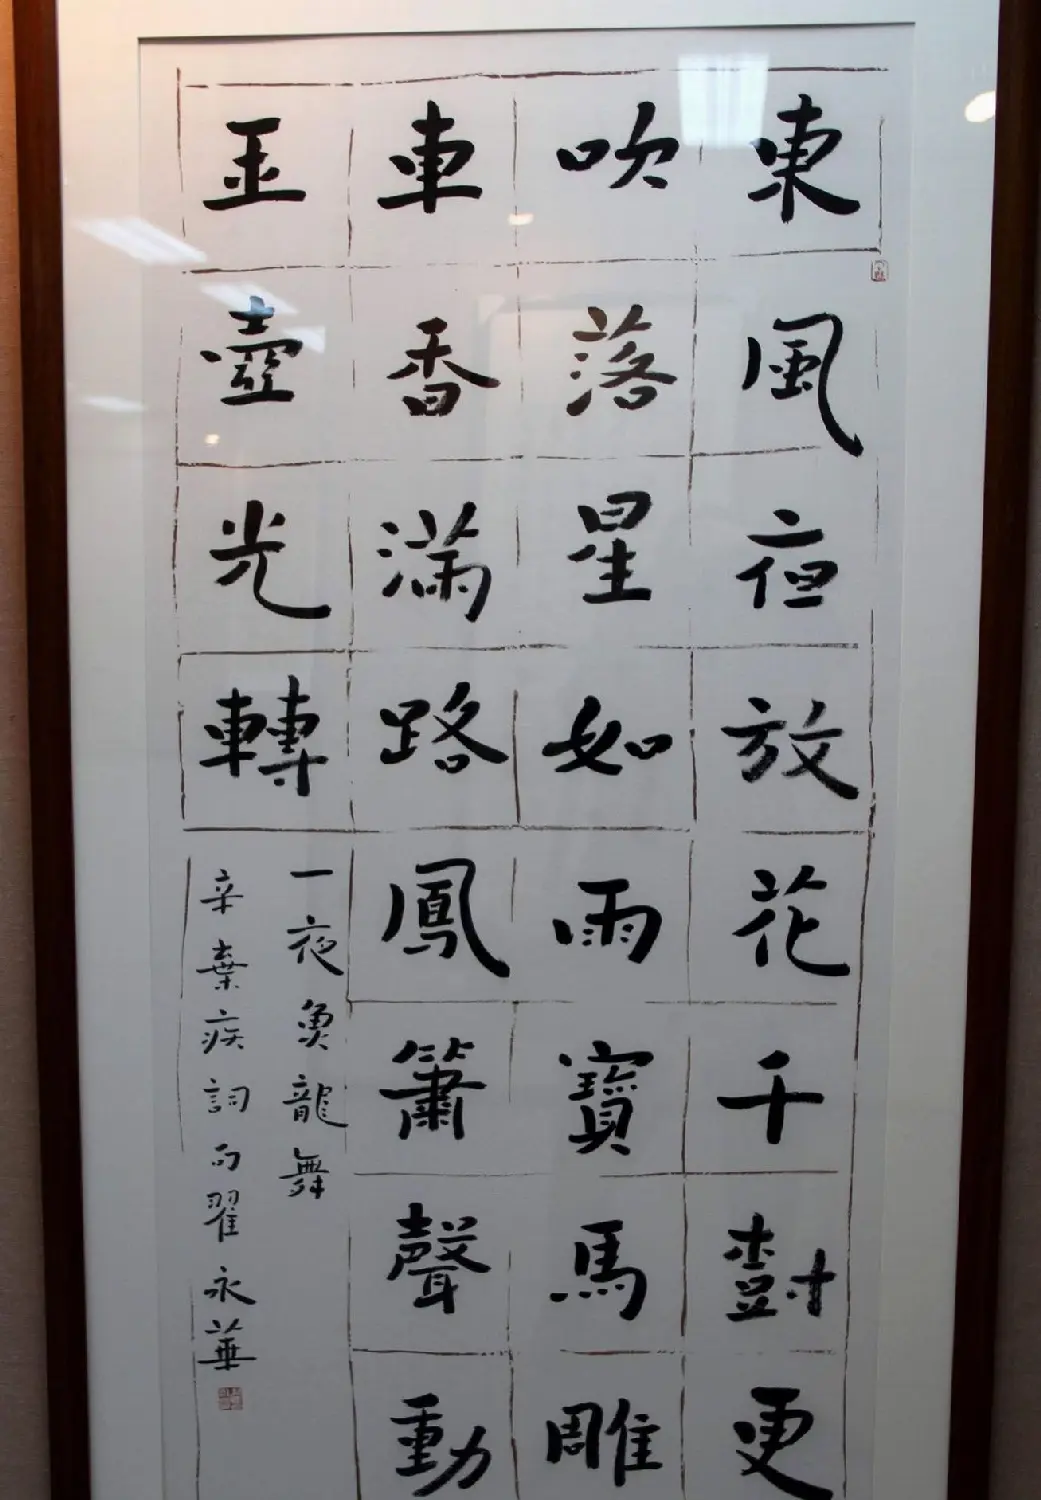 東風夜放花千樹更
吹落星如雨寶馬雕
車香滿路鳳簫聲動
玉壺光轉
一夜魚龍舞
辛棄疾詞句翟永華